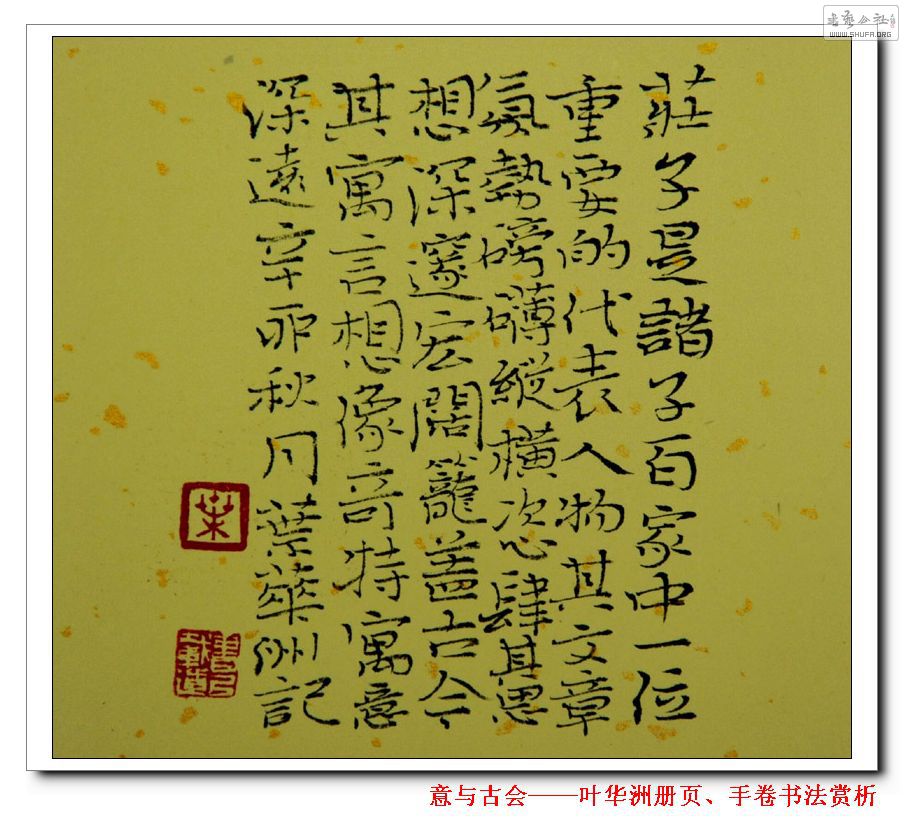 莊子是諸子百家中一位
重要的代表人物其文章
氣勢磅礡縱橫恣肆其思
想深邃宏闊籠蓋古今
其寓言想像奇特寓意
深遠辛卯秋月葉華洲記
書法公社
WWW.SHUFA.ORG
意与古会——叶华洲册页、手卷书法赏析